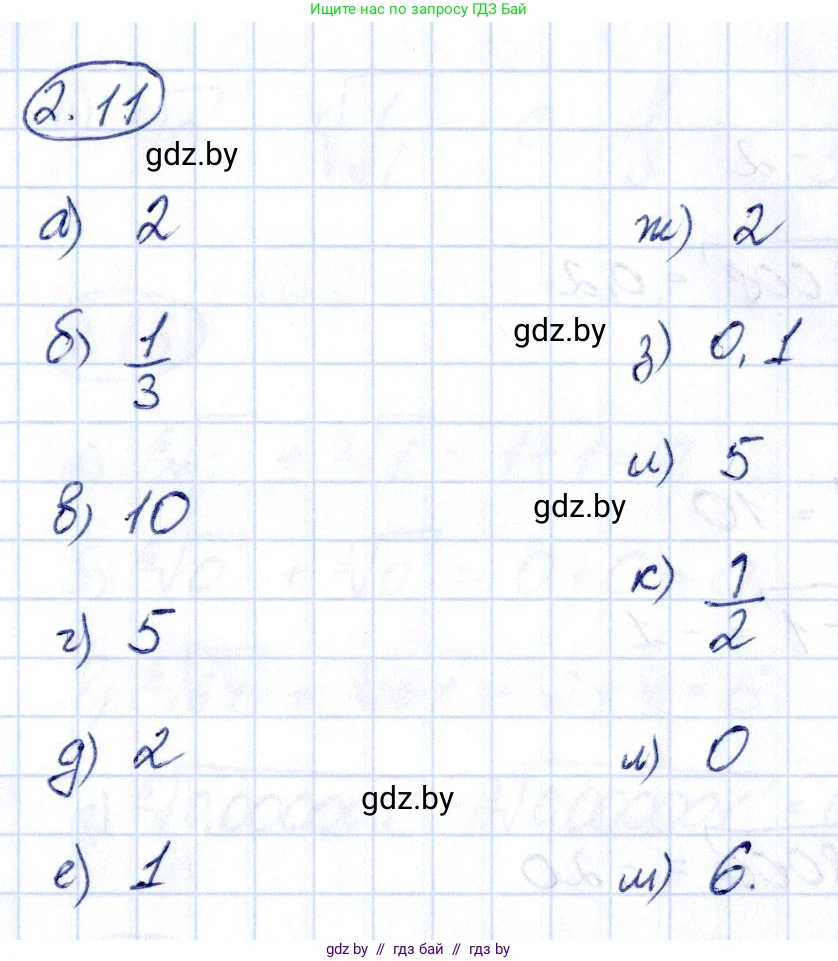 Ищите нас по запросу ГДЗ Бай
2.11
gdz.by
а) 2
б) 1/3
в) 10
г) 5
д) 2
е) 1
ж) 2
gdz.by
з) 0,1
и) 5
gdz.by
к) 1/2
л) 0
gdz.by
м) 6.
gdz by // гдз бай // гдз by